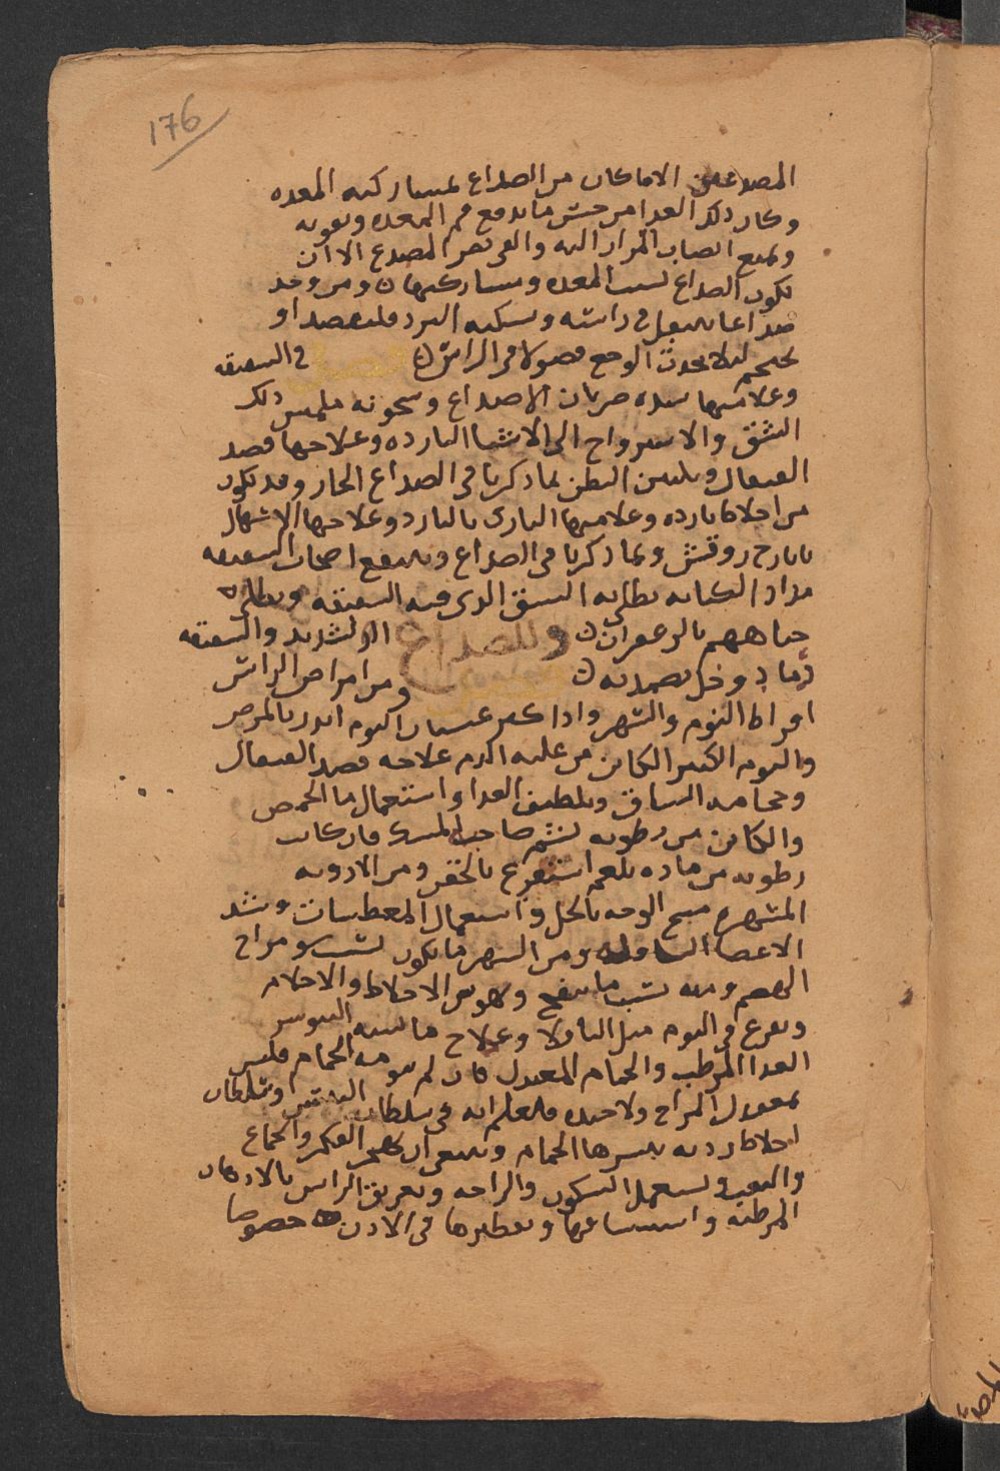 176
المصدعين الا ما كان من الصداع بمشاركه المعده
وكان ذلك الغذا من جنس ما يدفع فم المعده ويقويه
ويمنع انصاب المرار اليه والقي يضر المصدع الا ان
يكون الصداع لسبب المعده ومشاركتها ومن وجد
صداعا بثقل في راسه ويسكنه البرد فليفصد او
يحتجم ليلا يحدث الوجع فضولا في الراس فصل في الشقيقه
وعلامتها شده ضربان الاصداع وسخونه ملمس ذلك
الشق والاسترواح الى الاشيا البارده وعلاجها فصد
القيفال وتليين البطن بما ذكرنا في الصداع الحار وقد تكون
من اخلاط بارده وعلامتها التاذي بالبارد وعلاجها الاسهال
بايارج روفس وبما ذكرنا في الصداع وينفع اصحاب الشقيقه
مداد الكتابه يطلى به الشق الذي فيه الشقيقه ويطلى
جباههم بالزعفران وللصداع الشديد والشقيقه
رماد وخل يضمد به ومن امراض الراس
افراط النوم والسهر واذا كثر غشيان النوم انذر بالمرض
والنوم الكثير الكاين من غلبه الدم علاجه فصد القيفال
وحجامه الساق وتلطيف الغذا واستعمال ما الحمص
والكاين من رطوبه يشم صاحبه المسك فان كانت
رطوبه من ماده بلغم استفرغ بالحقن ومن الادويه
المسهره مسح الوجه بالخل واستعمال المعطسات وشد
الاعضا السافله ومن السهر ما يكون لسبب سو مزاج
الهضم ومنه بسبب ما ينفخ ويهوس الاخلاط والاحلام
ويفزع في النوم مثل الباقلا وعلاج ما سببه اليبوس
الغذا المرطب والحمام المعتدل فان لم ينومه الحمام فليس
بمعتدل المزاج ولا جيده فليعلم انه في سلطان اليبس وسلطان
اخلاط رديه يثيرها الحمام وينبغي ان يهجر الفكر والجماع
والتعب ويستعمل السكون والراحه وتغريق الراس بالادهان
المرطبه واستنشاقها وتقطيرها في الاذن خصوصا